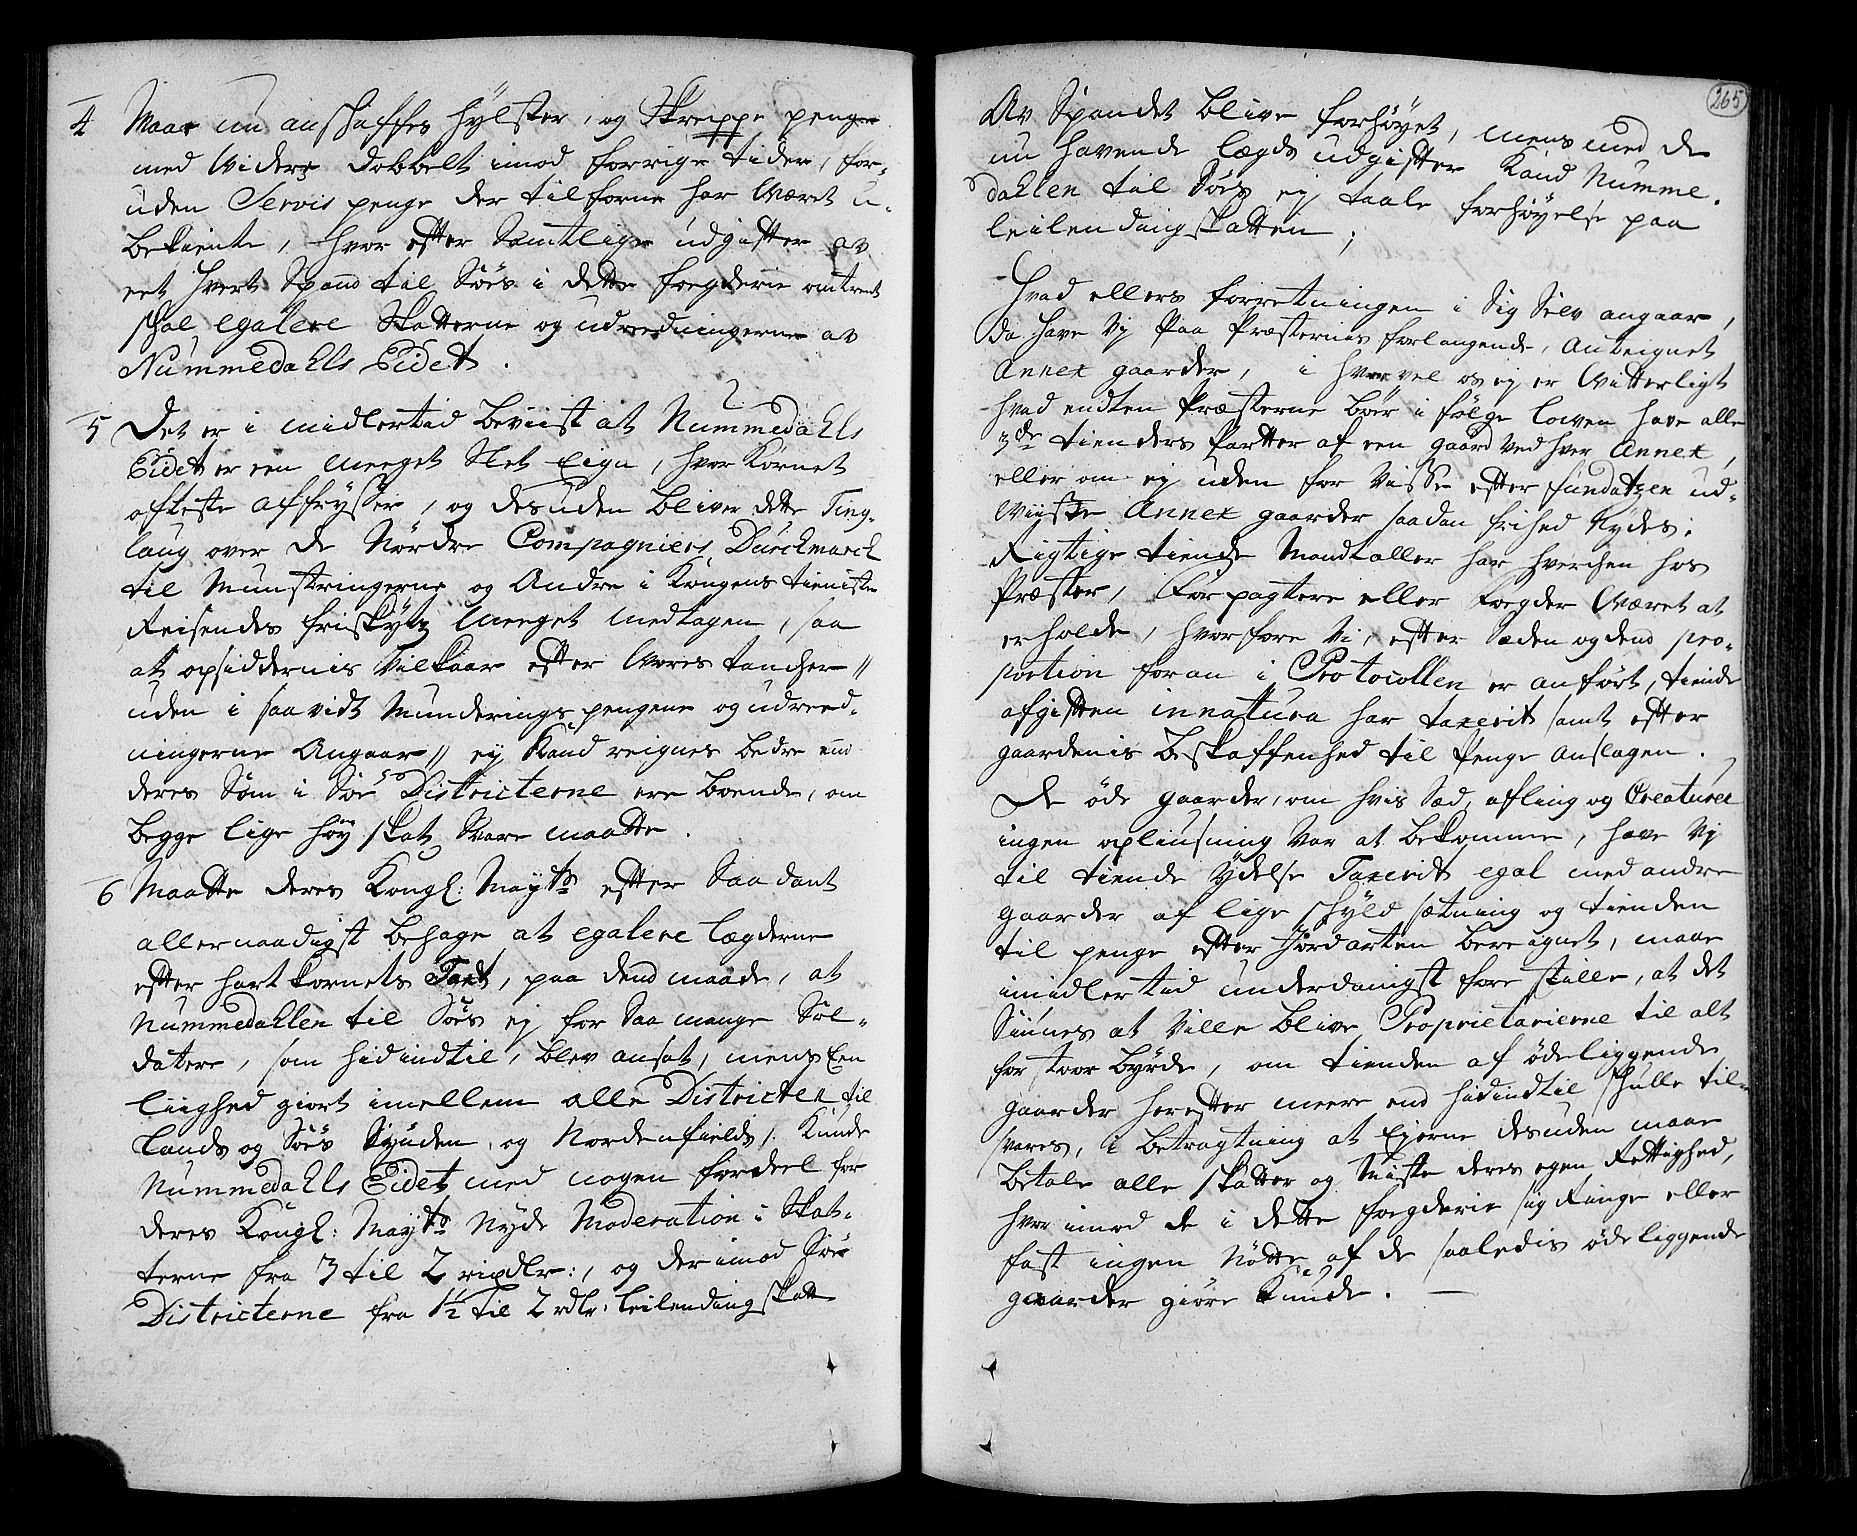 4 Maae nu anschaffes hylster, og Skreppe penge
med Widere dobbelt imod forrige tider, for-
uden Servis penge der tilforne har Wæret u-
bekiente, hvor efter Samtlige udgifter av
eet hvert Spand til Søes i dette fogderie omtrent
schal egalere Skatterne og udredningerne av
Nummedahls Eidet.
5 Det er i midlertid beviist at Nummedahls
Eidet er een meeget Slet Eign, hvor Kornet
ofteste affrysser, og desuden bliver dette Ting-
laug over de Nordre Compagniers Durchmarch
til Munstringerne og Andre i Kongens tieniste
Reisendes friskytz meeget medtagen, saa
at opsiddernis Vilkaar efter Wores tancher //
uden i saavidt Munderings pengene og udreed-
ningerne Angaar // ey kand reignes bedre end
deres Som i Søe Districterne ere boende, om
begge lige høy skat Svare maatte.
6 Maatte deres Kongl: Mayts efter Saadant
allernaadigst behage at egalere lægderne
efter hartkornets Taxt, paa dend maade, at
Nummedahlen til Søes ej for Saa mange Sol-
datere, som hidindtil, blev ansat, mens Een
liighed giort imellem alle Districter til
lands og Søes Synden, og Nordenfields, Kunde
Nummedahls Eidet med nogen fordeel for
deres Kongl: Mayts Nyde Moderation i Skat-
terne fra 3 til 2 rixdlr:, og derimod Søe
Districterne fra 1½ til 2 rdlr: leilendingskatt
265
Av Spandet blive forhøyet, mens med de
nu havende lægds udgifter Kand Numme-
dahlen til Søes ej taale forhøyelse paa
leilendingskatten;
Hvad ellers forretningen i Sig Selv angaar,
da have Vj Paa Præsternis forlangende, Anteignet
Annex gaarder, i hvorvel os ej er Witterligt
hvad endten Præsterne bør i følge lowen have alle
3de tienders Parter af een gaard ved hver Annex,
eller om ej uden for Visse efter fundatzen ud-
Wiiste Annex gaarder saadan frihed Nydes.
Rigtige tiende Mandtaller har hverchen hos
Præster, Forpagtere eller Fogder Wæret at
erholde, hvorfore Vi, efter Sæden og dend pro-
portion foran i Protocollen er anført, tiende
afgiften innatura har taxerit samt efter
gaardenis beskaffenhed til Penge anslagen.
De øde gaarder, om hvis Sæd, afling og Creaturer
ingen opliusning var at bekomme, have Vj
til tiende Ydelse Taxerit egal med andre
gaarder af lige schyld sætning og tienden
til penge efter Jordarten bereignet, maae
imidlertid underdanigst fore stille, at det
Siunes at Ville blive Proprietarierne til alt
for stoor byrde, om tienden af ødeliggende
gaarder herefter meere end hidindtil schulle til-
svares, i betragtning at Ejerne desuden maae
betale alle skatter og Miste deres egen Rettighed,
hvor imod de i dette fogderie sig Ringe eller
fast ingen Nøtte af de saaledis ødeliggende
gaarder giøre kunde. —